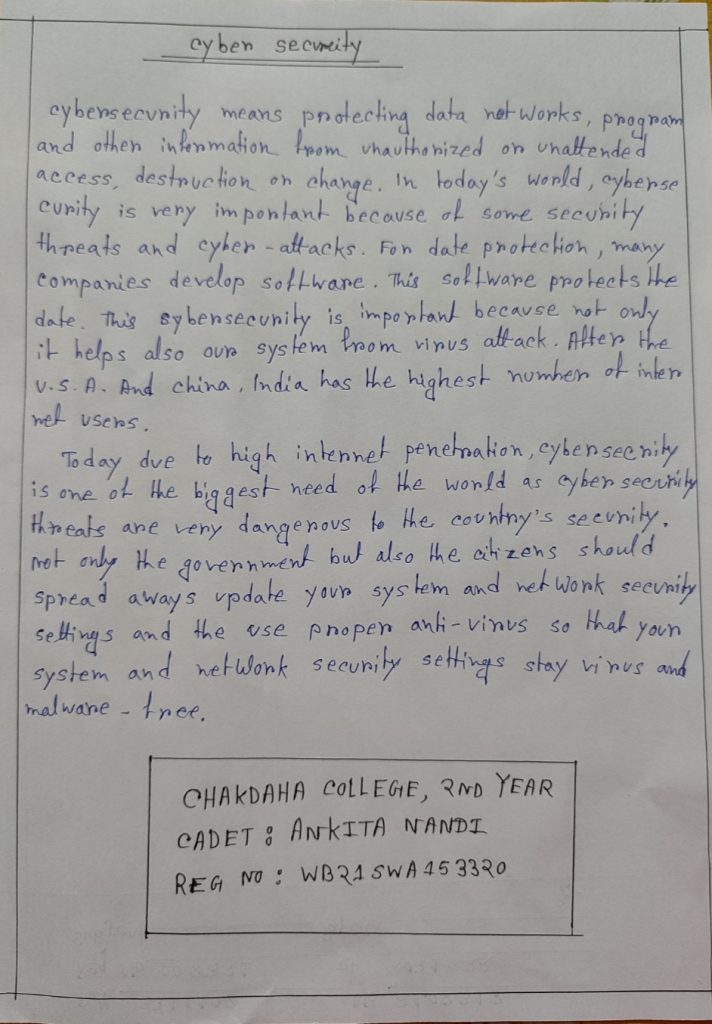 cyber security
cybersecurity means protecting data net works, program
and other information from unauthorized or unattended
access, destruction or change. In today's world, cyberse
curity is very important because of some security
threats and cyber-attacks. For date protection, many
companies develop software. This software protects the
date. This cybersecurity is important because not only
it helps also our system from virus attack. After the
U.S.A. And china, India has the highest number of inter
net users.
Today due to high internet penetration, cybersecrity
is one of the biggest need of the world as cyber security
threats are very dangerous to the country's security.
not only the government but also the citizens should
spread aways update your system and net work security
settings and the use proper anti-virus so that your
system and network security settings stay virus and
malware - free.
CHAKDAHA COLLEGE, 2ND YEAR
CADET : ANKITA NANDI
REG NO : WB21SWA153320